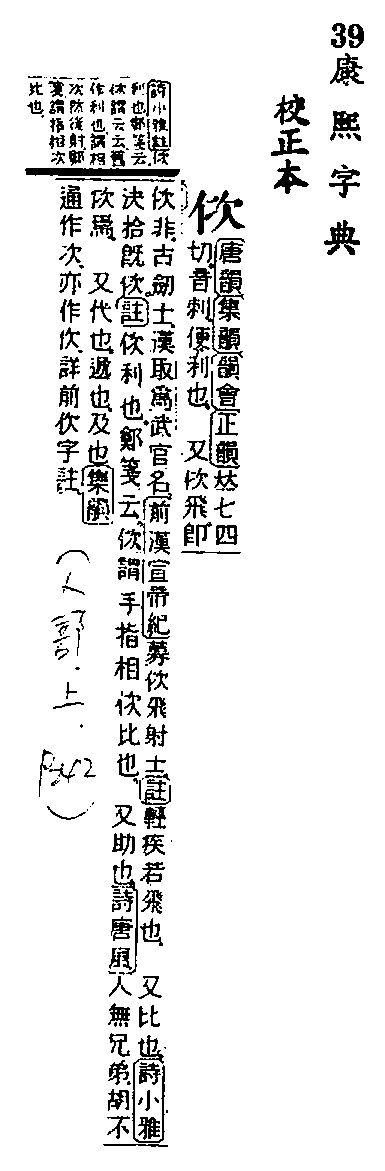 39康熙字典
校正本
佽 唐韻集韻韻會正韻𠀤七四
切音刺便利也 又佽飛即
佽非古劒士漢取爲武官名前漢宣帝紀募佽飛射士註輕疾若飛也 又比也詩小雅
決拾旣佽註佽利也鄭箋云佽謂手指相佽比也 又助也詩唐風人無兄弟胡不
佽焉 又代也遞也及也集韻
通作次亦作㐸詳前㐸字註
詩小雅註佽
利也鄭箋云
佽謂云云舊
作利也謂相
次然後射鄭
箋謂指相次
比也
(人部.上.P42)